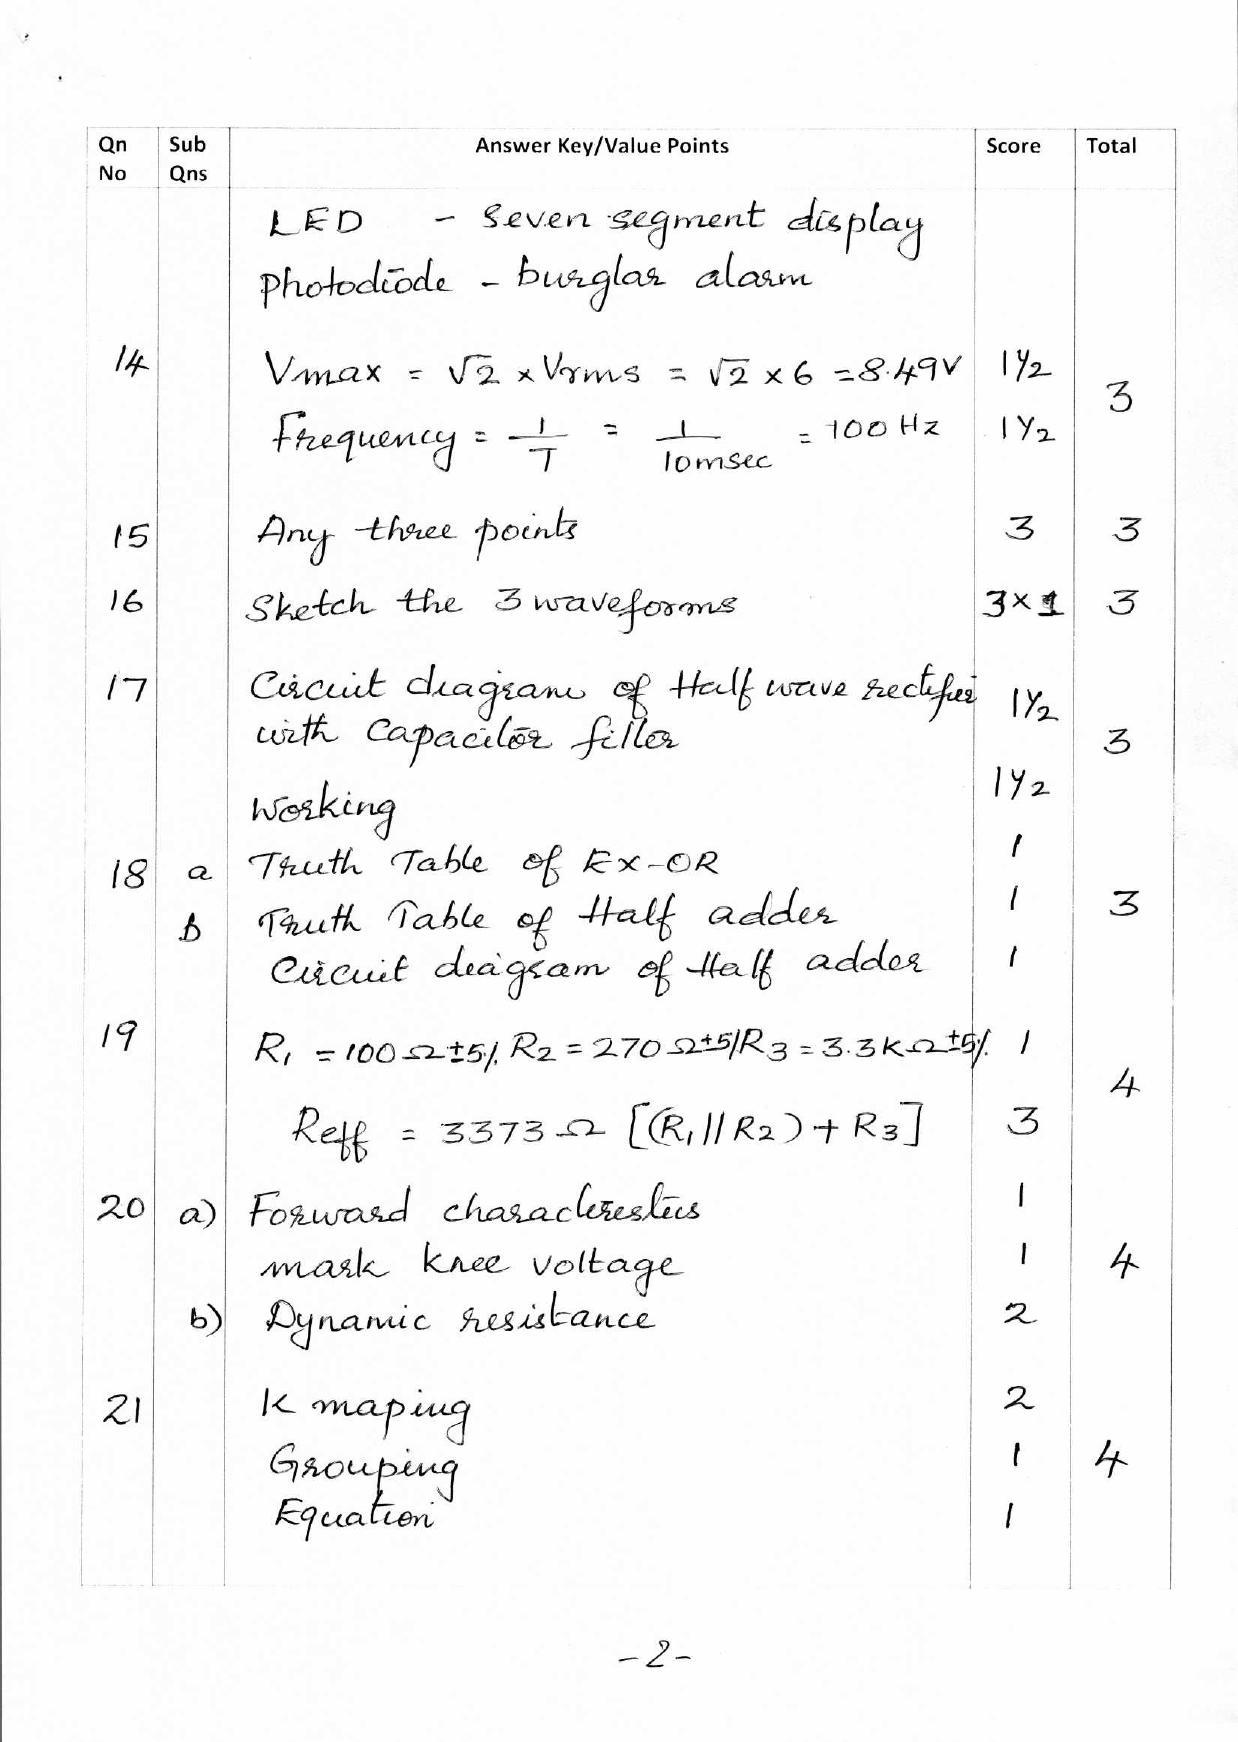 Qn Sub Answer Key/Value Points Score Total
No Qns
LED - Seven segment display
Photodiode - burglar alarm
14 Vmax = √2 × Vrms = √2 × 6 = 8.49V 1½ 3
Frequency = 1/T = 1/10msec = 100 Hz 1½
15 Any three points 3 3
16 Sketch the 3 waveforms 3×1 3
17 Circuit diagram of Half wave rectifier 1½
with Capacitor filter 3
Working 1½
18 a Truth Table of Ex-OR 1
b Truth Table of Half adder 1 3
Circuit diagram of Half adder 1
19 R1 = 100Ω±5% R2 = 270Ω±5% R3 = 3.3KΩ±5% 1 4
Reff = 3373Ω [(R1//R2)+R3] 3
20 a) Forward characteristics 1
mark knee voltage 1 4
b) Dynamic resistance 2
21 K maping 2
Grouping 1 4
Equation 1
-2-